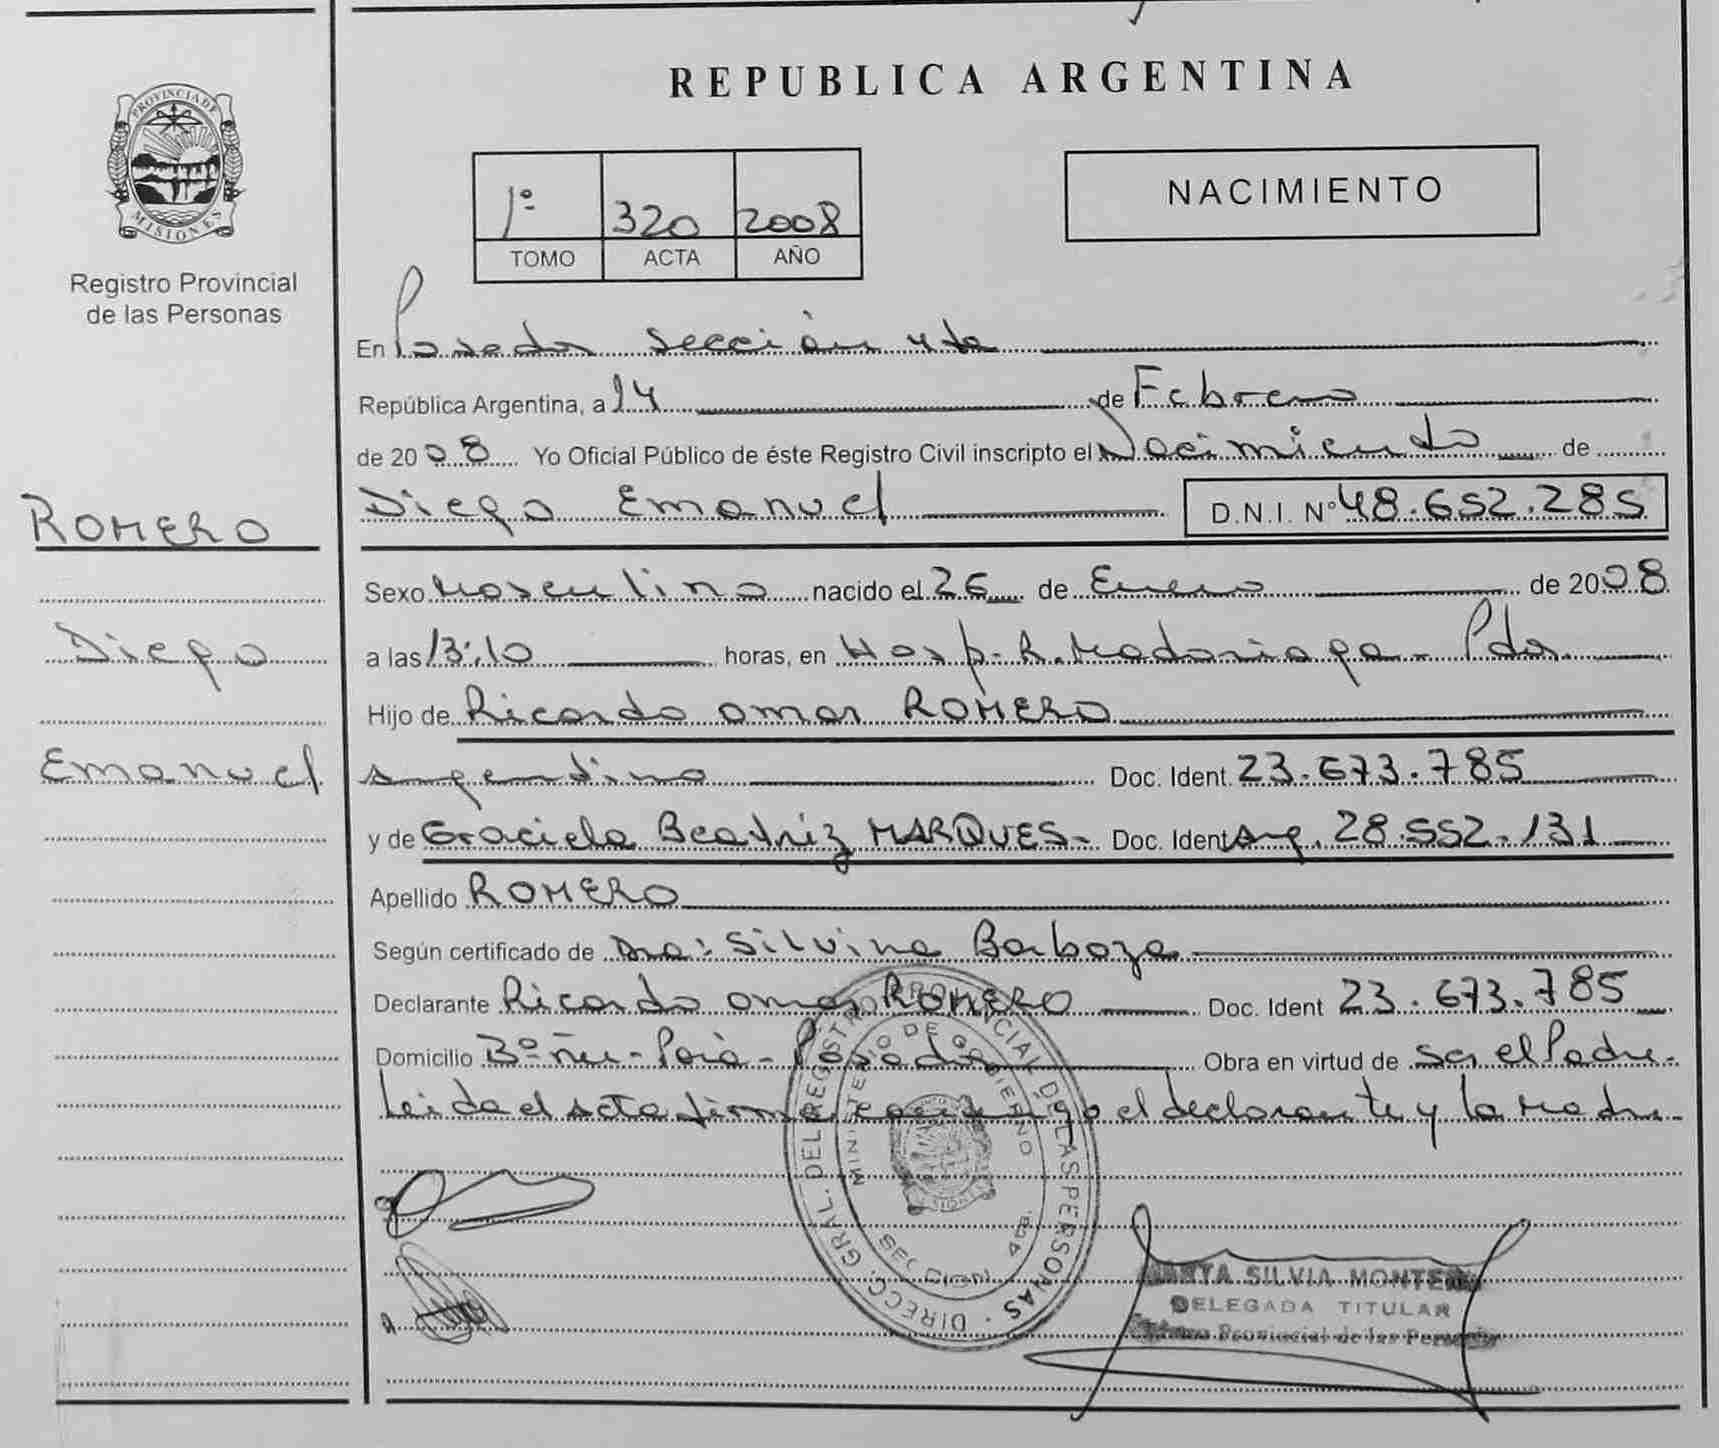 REPUBLICA ARGENTINA
PROVINCIA DE
MISIONES
Registro Provincial
de las Personas
1º 320 2008
TOMO ACTA AÑO
NACIMIENTO
En Posadas sección 4ta
República Argentina, a 14 de Febrero
de 2008 Yo Oficial Público de éste Registro Civil inscripto el Nacimiento de
ROMERO
Diego Emanuel D.N.I. Nº 48.652.285
Sexo Masculino nacido el 26 de Enero de 2008
Diego
a las 13:10 horas, en Hosp. R. Madariaga - Pdas.
Hijo de Ricardo Omar ROMERO
Emanuel
argentino Doc. Ident. 23.673.785
y de Graciela Beatriz MARQUES- Doc. Ident Arg. 28.552.131
Apellido ROMERO
Según certificado de Dra: Silvina Barboza
Declarante Ricardo Omar ROMERO Doc. Ident 23.673.785
Domicilio Bº Ñu-Porá-Posadas Obra en virtud de ser el Padre-
Leida el acta firma conmigo el declarante y la Madre-
DIRECC. GRAL. DEL REGISTRO PROVINCIAL DE LAS PERSONAS
MINISTERIO DE GOBIERNO
SECCION 4ta.
MARTA SILVIA MONTE
DELEGADA TITULAR
Provincial de las Personas